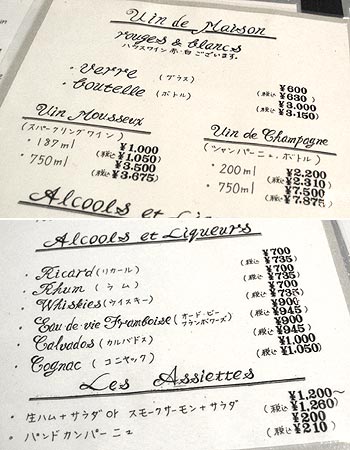 Vin de Maison
rouges & blancs
ハウスワイン 赤・白 ございます。
・verre (グラス) ¥600
(税込 ¥630)
・bouteille (ボトル) ¥3.000
(税込 ¥3.150)
Vin Mousseux
(スパークリングワイン)
・187ml ¥1.000
(税込 ¥1.050)
・750ml ¥3.500
(税込 ¥3.675)
Vin de Champagne
(シャンパーニュ、ボトル)
・200ml ¥2.200
(税込 ¥2.310)
・750ml ¥7.500
(税込 ¥7.875)
Alcools et Li
Alcools et Liqueurs
・Ricard (リカール) ¥700
(税込 ¥735)
・Rhum (ラム) ¥700
(税込 ¥735)
・Whiskies (ウイスキー) ¥900
(税込 ¥945)
・Eau-de-vie Framboise (オード・ビー フランボワーズ) ¥900
(税込 ¥945)
・Calvados (カルバドス) ¥1.000
(税込 ¥1.050)
・Cognac (コニャック)
Les Assiettes
・生ハム+サラダ or スモークサーモン+サラダ ¥1.200~
(税込 ¥1.260)
・パンドカンパーニュ ¥200
(税込 ¥210)